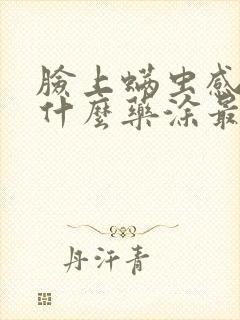 臉上螨虫感
什麼藥涂最
丹汗青